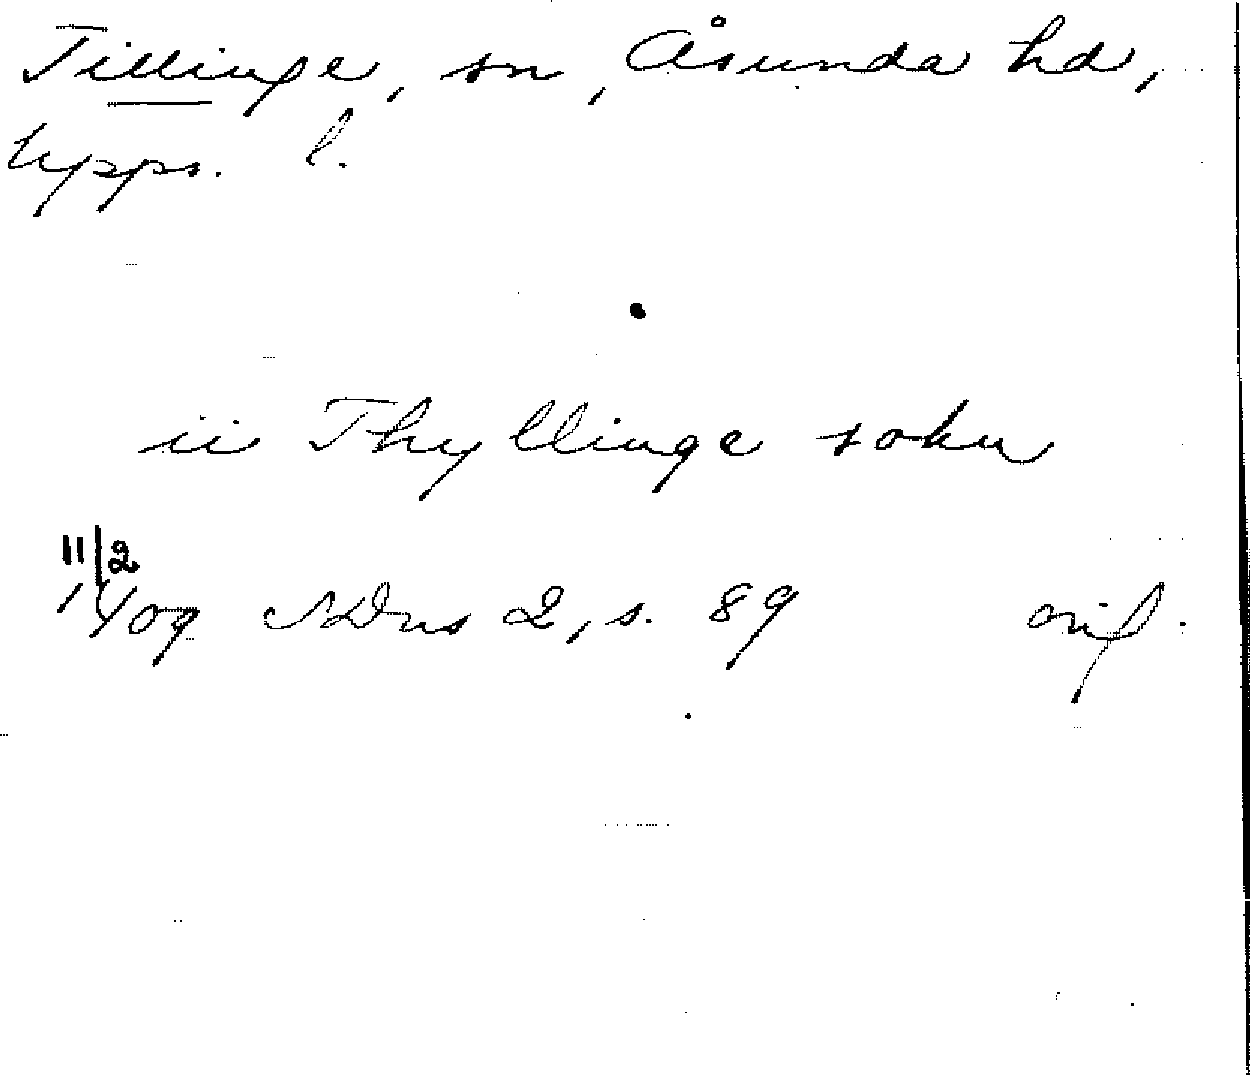 Tillinge, sn, Åsunda hd,
Upps. l.
ii Thyllinge sokn
11/2
1409 SDns 2, s. 89 orig.